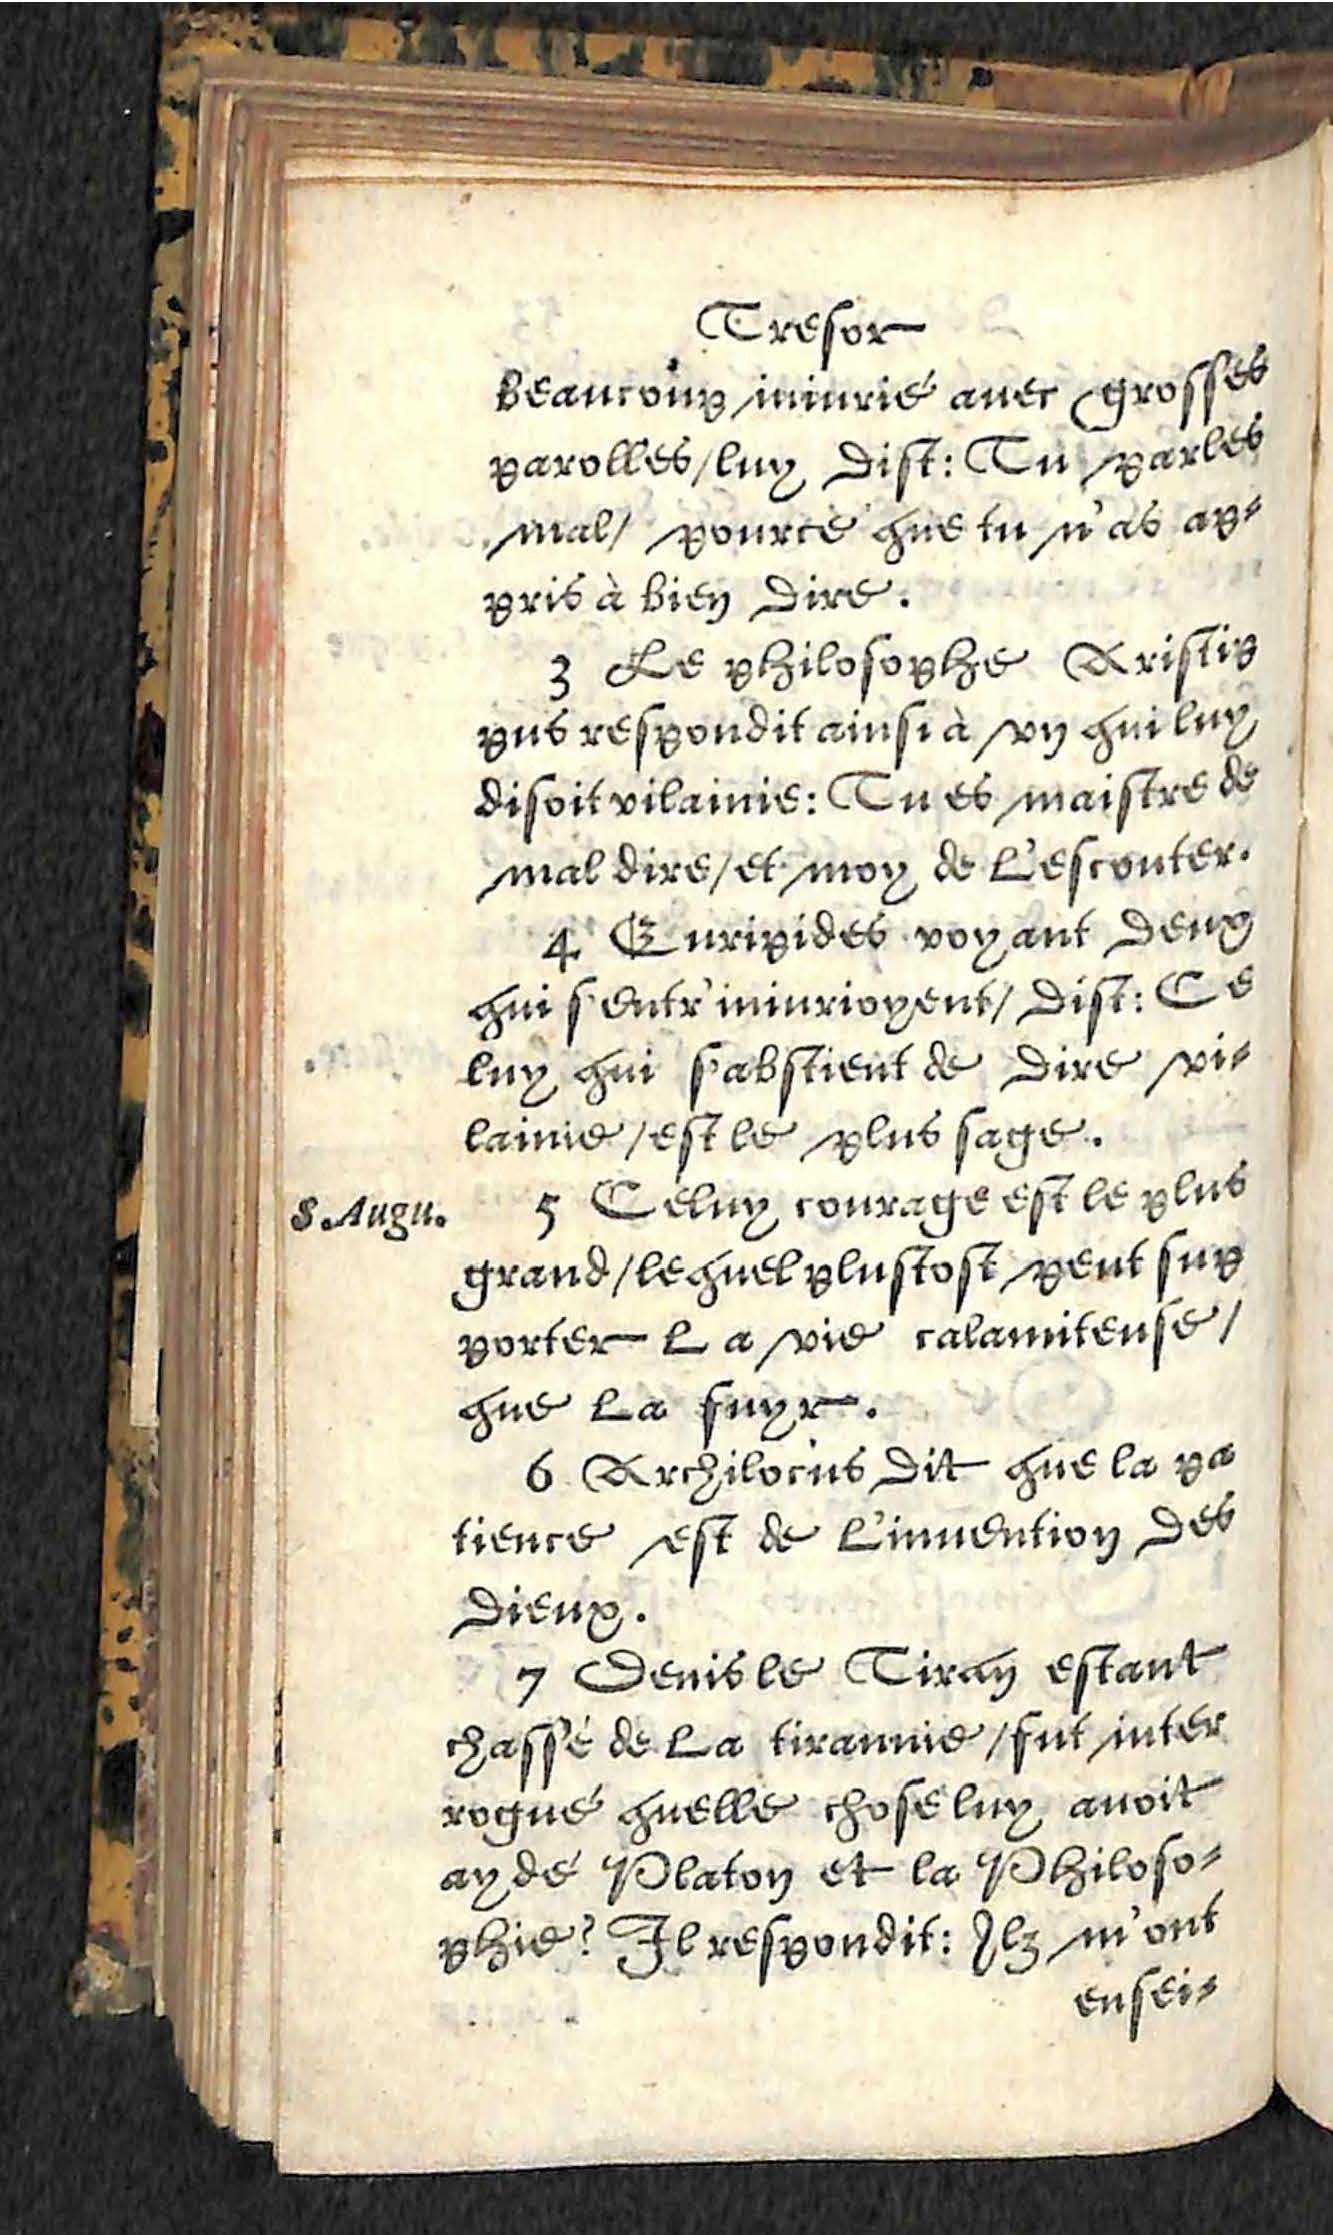 Tresor
beaucoup iniurié auec grosses
parolles/luy dist: Tu parles
mal/ pource que tu n'as ap-
pris à bien dire.
3 Le philosophe Aristip
pus respondit ainsi à vn qui luy
disoit vilainie: Tu es maistre de
mal dire/et moy de l'escouter.
4 Euripides voyant deux
qui s'entr'iniurioyent/ dist: Ce
luy qui s'abstient de dire vi-
lainie/est le plus sage.
S. Augu.
5 Celuy courage est le plus
grand/lequel plustost peut sup
porter la vie calamiteuse/
que la fuyr.
6 Archilocus dit que la pa
tience est de l'inuention des
dieux.
7 Denis le Tiran estant
chassé de la tirannie/fut inter
rogué quelle chose luy auoit
aydé Platon et la Philoso-
phie? Il respondit: Ilz m'ont
ensei-